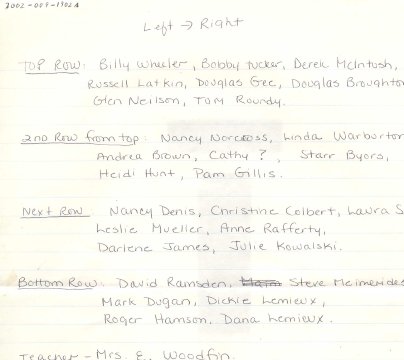 2002-009-1902A
Left → Right
Top Row: Billy Wheeler, Bobby Tucker, Derek McIntosh,
Russell Latkin, Douglas Gec, Douglas Broughton
Glen Neilson, Tom Roundy.
2nd Row from top: Nancy Norcross, Linda Warburton
Andrea Brown, Cathy ?, Starr Byers,
Heidi Hunt, Pam Gillis.
Next Row Nancy Denis, Christine Colbert, Laura S
Leslie Mueller, Anne Rafferty,
Darlene James, Julie Kowalski.
Bottom Row: David Ramsden, Steve Meimerides
Mark Dugan, Dickie Lemieux,
Roger Hamson, Dana Lemieux.
Teacher - Mrs. E. Woodfin.